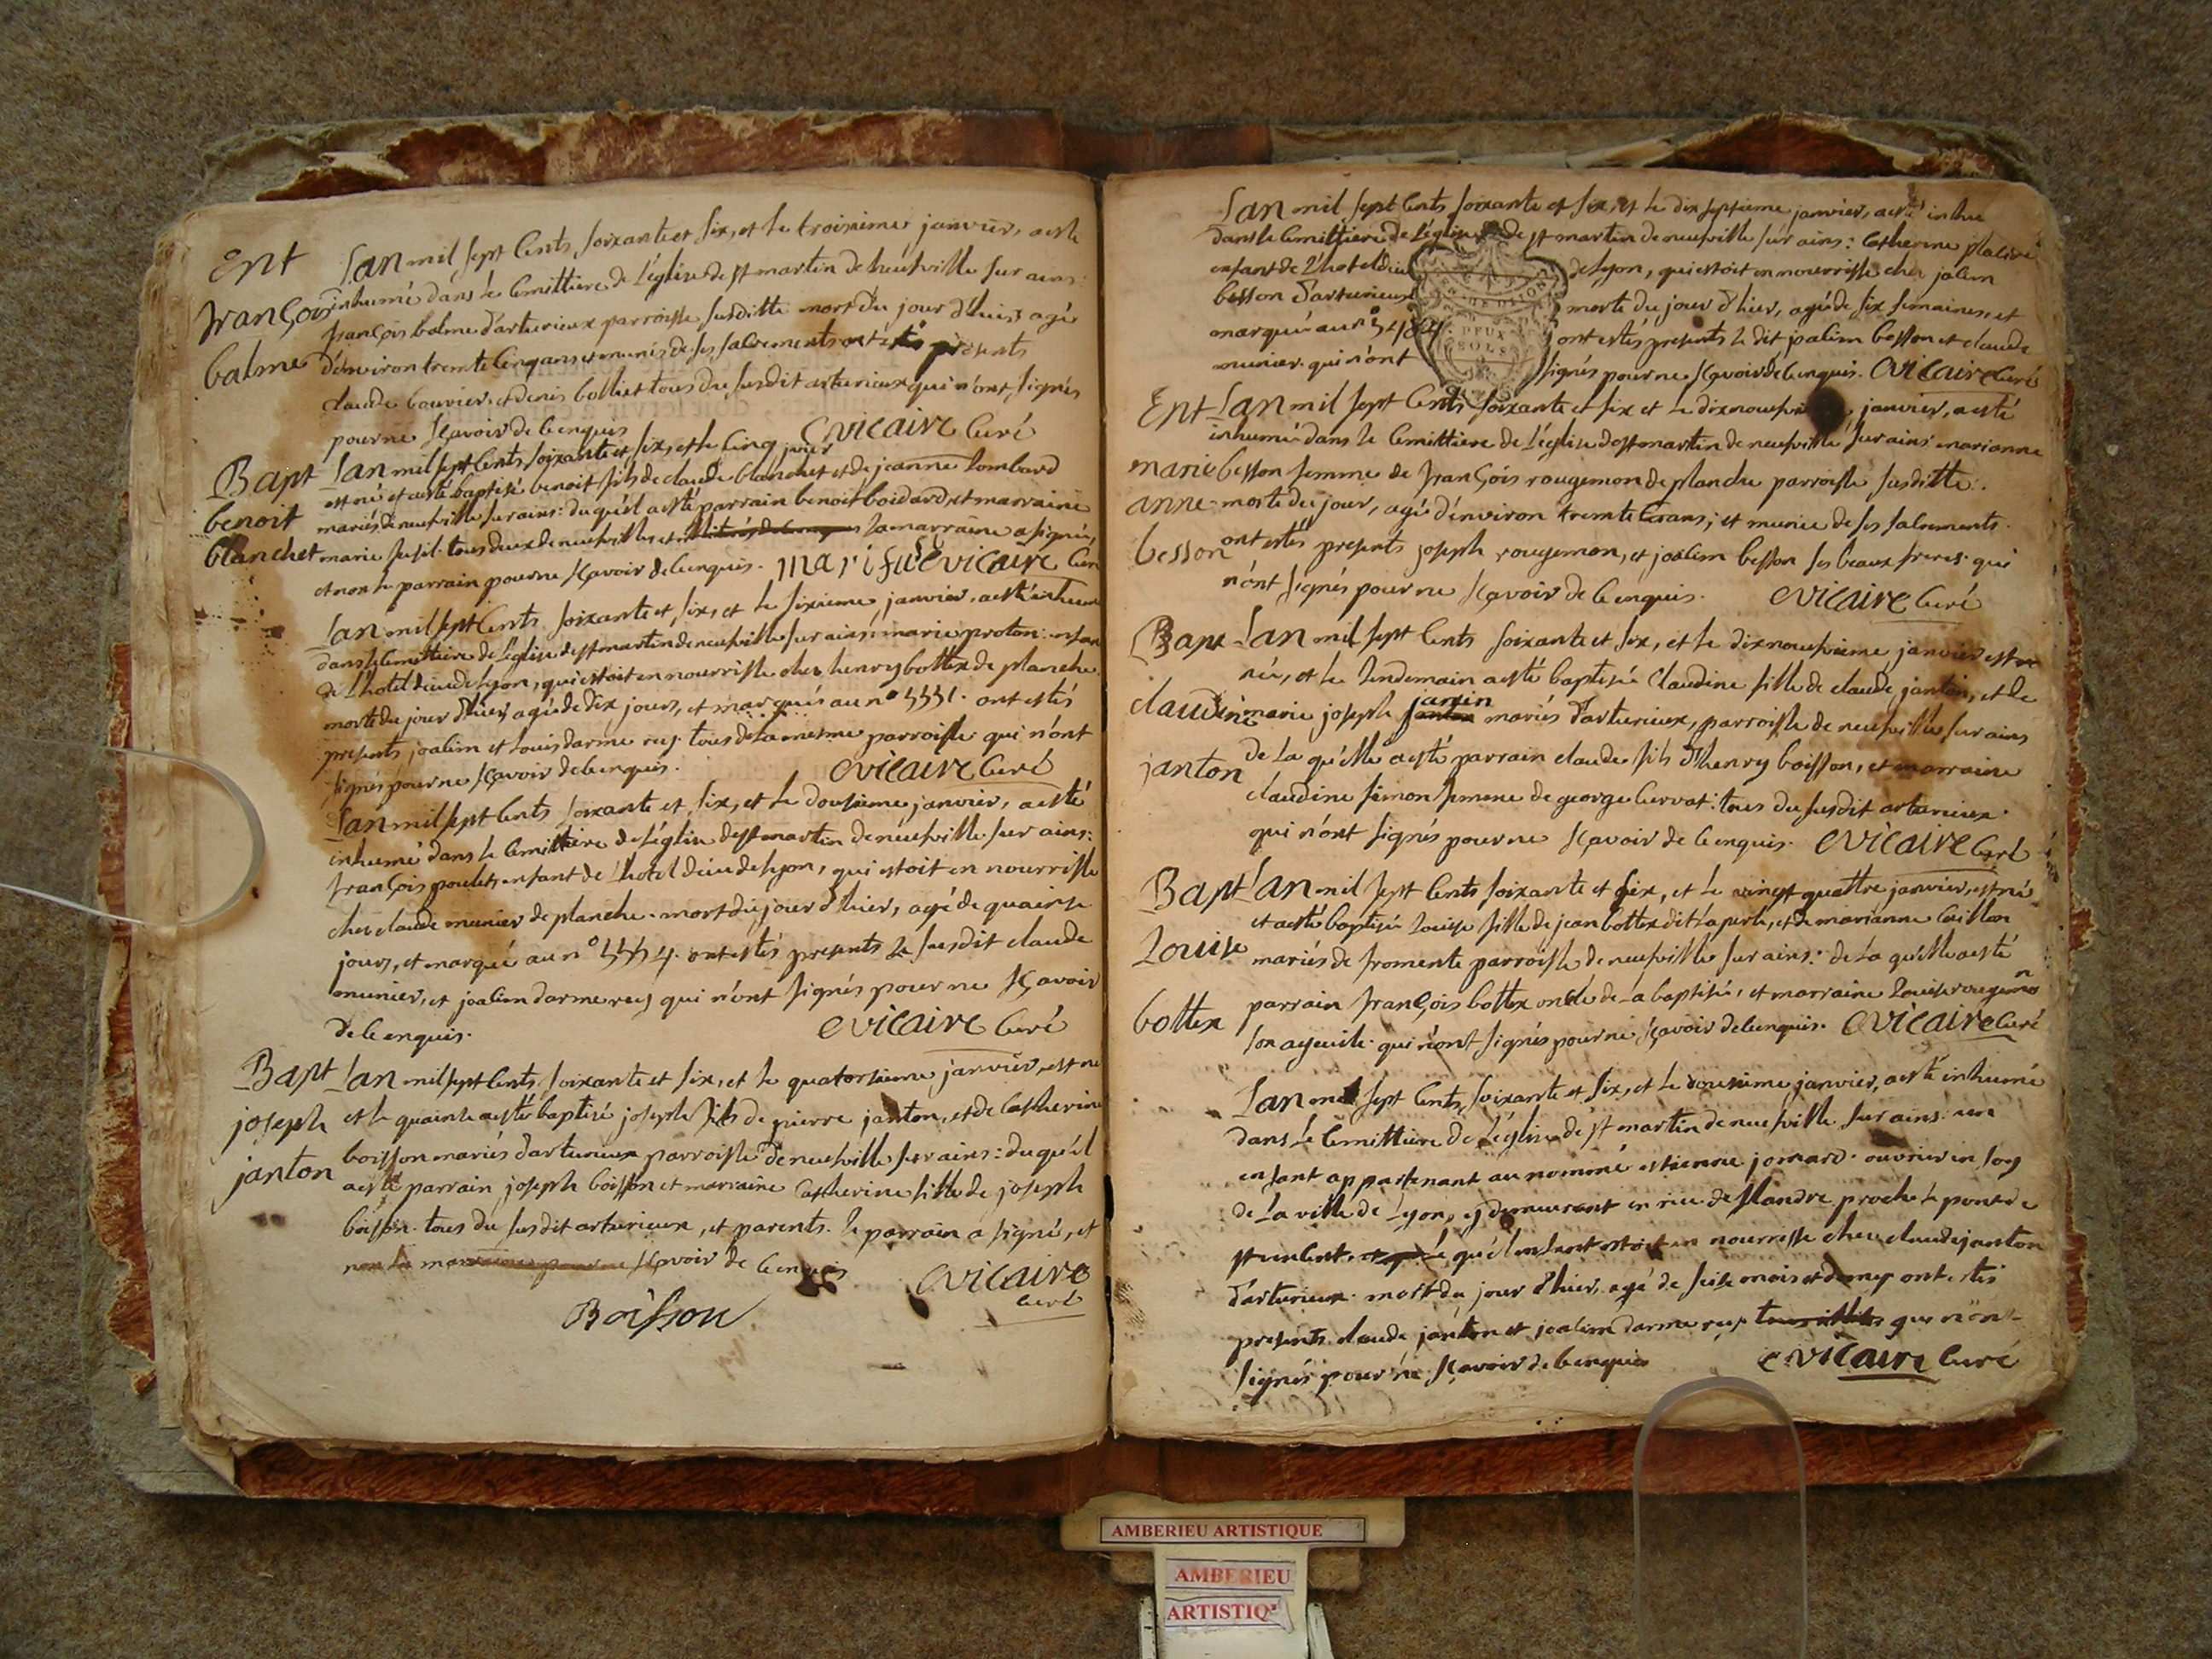 Ent
françois
balme
Lan mil sept Cents soixante et six, et le troisieme janvier, a esté
inhumé dans le Cemittiere de l'église de st martin de neufville sur ains:
françois balme d'arturieux parroisse susditte mort du jour d'huis agé
d'environ trente Cinq ans et munis de ses sacrements ont estés présents
claude bouvier, et denis bottex tous du susdit arturieux qui n'ont signés
pour ne sçavoir de Ce enquis Evicaire Curé
Bapt
benoit
blanchet
Lan mil sept Cents soixante et six, et le Cinq janvier
est né et a esté baptisé benoit fils de claude blanchet et de jeanne Lombard
mariés de neufville sur ains: duquél a esté parrain benoit boidard, et marraine
marie fusil tous deux de neufville, et La marraine a signé,
et non le parrain pour ne sçavoir de Ce enquis. Evicaire Curé
Lan mil sept Cents soixante et six, et le sixieme janvier, a esté inhumé
dans le Cemittiere de l'église de st martin de neufville sur ains: marie proton: enfant
de L'hotel dieu de Lyon, qui estoit en nourrisse chés henry bottex de planche
morte du jour d'hier, agée de dix jours, et marquée au n° 5551. ont estés
presents joalim et Louis darmerey. tous de La mesme parroisse qui n'ont
signés pour ne sçavoir de Ce enquis. Evicaire Curé
Lan mil sept Cents soixante et six, et Le dousieme janvier, a esté
inhumé dans Le Cemittiere de L'église de st martin de neufville sur ains:
françois poulet, enfant de L'hotel dieu de Lyon, qui estoit en nourrisse
chés claude munier de planche. mort du jour d'hier, agé de quainse
jours, et marqué au n° 5554. ont estés presents Le susdit claude
munier, et joalim darmerey qui n'ont signés pour ne sçavoir
de Ce enquis. Evicaire Curé
Bapt
joseph
janton
Lan mil sept Cents soixante et six, et le quatorsieme janvier, est né
et le quainse a esté baptisé joseph fils de pierre janton, et de Catherine
boisson mariés d'arturieux parroisse de neufville sur ains: duquél
a esté parrain joseph boisson et marraine Catherine fille de joseph
boisson. tous du susdit arturieux, et parents. le parrain a signé, et
non La marraine pour ne sçavoir de Ce enquis Evicaire
Curé
Boisson
Lan mil sept Cents soixante et six, et Le dix septieme janvier, a esté inhue
dans le Cemittiere de L'église de st martin de neufville sur ains: Catherine
enfant de L'hotel dieu de Lyon, qui estoit en nourrisse chés jalim
besson d'arturieux morte du jour d'hier, agée de six semaines, et
marquée au n° 5484 ont estés presents le dit jalim besson et claude
munier. qui n'ont signés pour ne sçavoir de Ce enquis. Evicaire Curé
DEUX
SOLS
Ent
marie
anne
besson
Lan mil sept Cents soixante et six et Le dixneufvieme janvier, a esté
inhumée dans le Cemittiere de L'église de st martin de neufville sur ains marianne
besson femme de françois rougemon de planche parroisse susditte.
morte du jour, agée d'environ trente ans; et munie de ses sacrements.
ont estés presents joseph rougemon, et joalim besson ses beaux freres. qui
n'ont signés pour ne sçavoir de Ce enquis. Evicaire Curé
Bapt
claudine
janton
Lan mil sept Cents soixante et six, et le dixneufvieme janvier est
née, et le Lendemain a esté baptisée Claudine fille de claude janton, et de
marie joseph janin mariés d'arturieux, parroisse de neufville sur ains
de La quélle a esté parrain claude fils d'henry boisson, et marraine
claudine simon femme de george Cervat: tous du susdit arturieux.
qui n'ont signés pour ne sçavoir de Ce enquis. Evicaire Curé
Bapt
Louise
bottex
Lan mil sept Cents soixante et six, et le vingt quattre janvier, est née
et a esté baptisée Louise fille de jean bottex dit La perle, et de marianne
mariés de fromente parroisse de neufville sur ains: de La quélle a esté
parrain françois bottex oncle de La baptisée, et marraine Louise rougemon
son ayeuile. qui n'ont signés pour ne sçavoir de Ce enquis. Evicaire Curé
Lan mil sept Cents soixante et six, et le dousieme janvier, a esté inhumé
dans Le Cemittiere de L'église de st martin de neufville sur ains: un
enfant appartenant au nommé estienne jomard. ouvrier en soy
de La ville de Lyon, y demeurant en rüe de flandre proche Le pont de
st vincent. quél enfant estoit en nourrisse chés claude janton
d'arturieux. mort du jour d'hier, agé de seise mois et demy ont estés
presents claude janton et joalim darmerey qui n'ont
signés pour ne sçavoir de Ce enquis Evicaire Curé
AMBERIEU ARTISTIQUE
AMBERIEU
ARTISTIQ